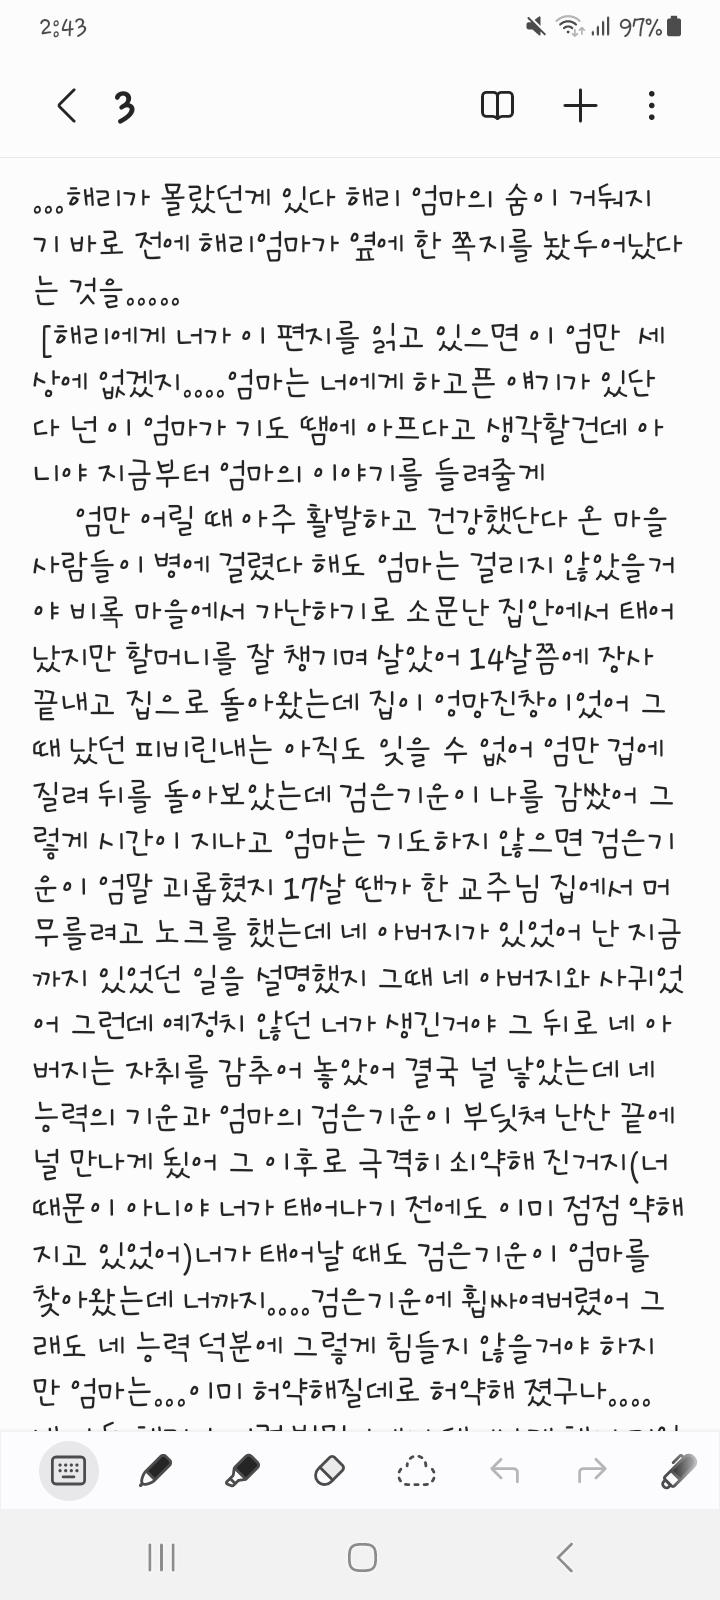 2:43 97%
3
...해리가 몰랐던게 있다 해리 엄마의 숨이 거둬지
기 바로 전에 해리엄마가 옆에 한 쪽지를 놨두어났다
는 것을.....
[해리에게 너가 이 편지를 읽고 있으면 이 엄만 세
상에 없겠지....엄마는 너에게 하고픈 얘기가 있단
다 넌 이 엄마가 기도 땜에 아프다고 생각할건데 아
니야 지금부터 엄마의 이야기를 들려줄게
엄만 어릴 때 아주 활발하고 건강했단다 온 마을
사람들이 병에 걸렸다 해도 엄마는 걸리지 않았을거
야 비록 마을에서 가난하기로 소문난 집안에서 태어
났지만 할머니를 잘 챙기며 살았어 14살쯤에 장사
끝내고 집으로 돌아왔는데 집이 엉망진창이었어 그
때 났던 피비린내는 아직도 잊을 수 없어 엄만 겁에
질려 뒤를 돌아보았는데 검은기운이 나를 감쌌어 그
렇게 시간이 지나고 엄마는 기도하지 않으면 검은기
운이 엄말 괴롭혔지 17살 땐가 한 교주님 집에서 머
무를려고 노크를 했는데 네 아버지가 있었어 난 지금
까지 있었던 일을 설명했지 그때 네 아버지와 사귀었
어 그런데 예정치 않던 너가 생긴거야 그 뒤로 네 아
버지는 자취를 감추어 놓았어 결국 널 낳았는데 네
능력의 기운과 엄마의 검은기운이 부딪쳐 난산 끝에
널 만나게 됬어 그 이후로 극격히 쇠약해 진거지(너
때문이 아니야 너가 태어나기 전에도 이미 점점 약해
지고 있었어)너가 태어날 때도 검은기운이 엄마를
찾아왔는데 너까지....검은기운에 휩싸여버렸어 그
래도 네 능력 덕분에 그렇게 힘들지 않을거야 하지
만 엄마는...이미 허약해질데로 허약해 졌구나....